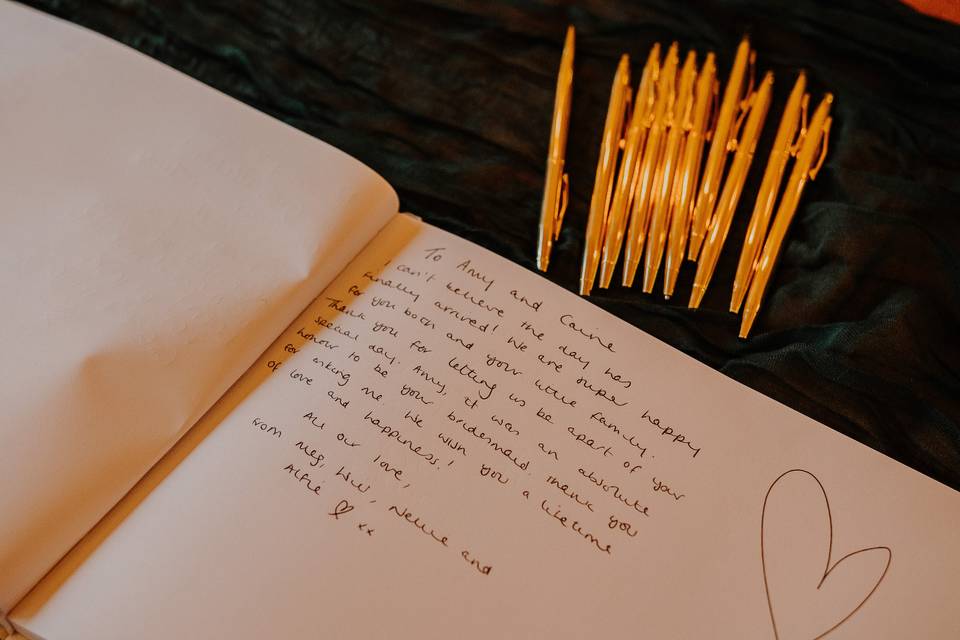 To Amy and Caine
I can't believe the day has
finally arrived! We are super happy
for you both and your little family.
Thank you for letting us be apart of your
special day. Amy, it was an absolute
honour to be your bridesmaid. Thank you
for asking me. We wish you a lifetime
of love and happiness!
All our love,
from Meg, Will, Nellie and
Alfie ♡ xx